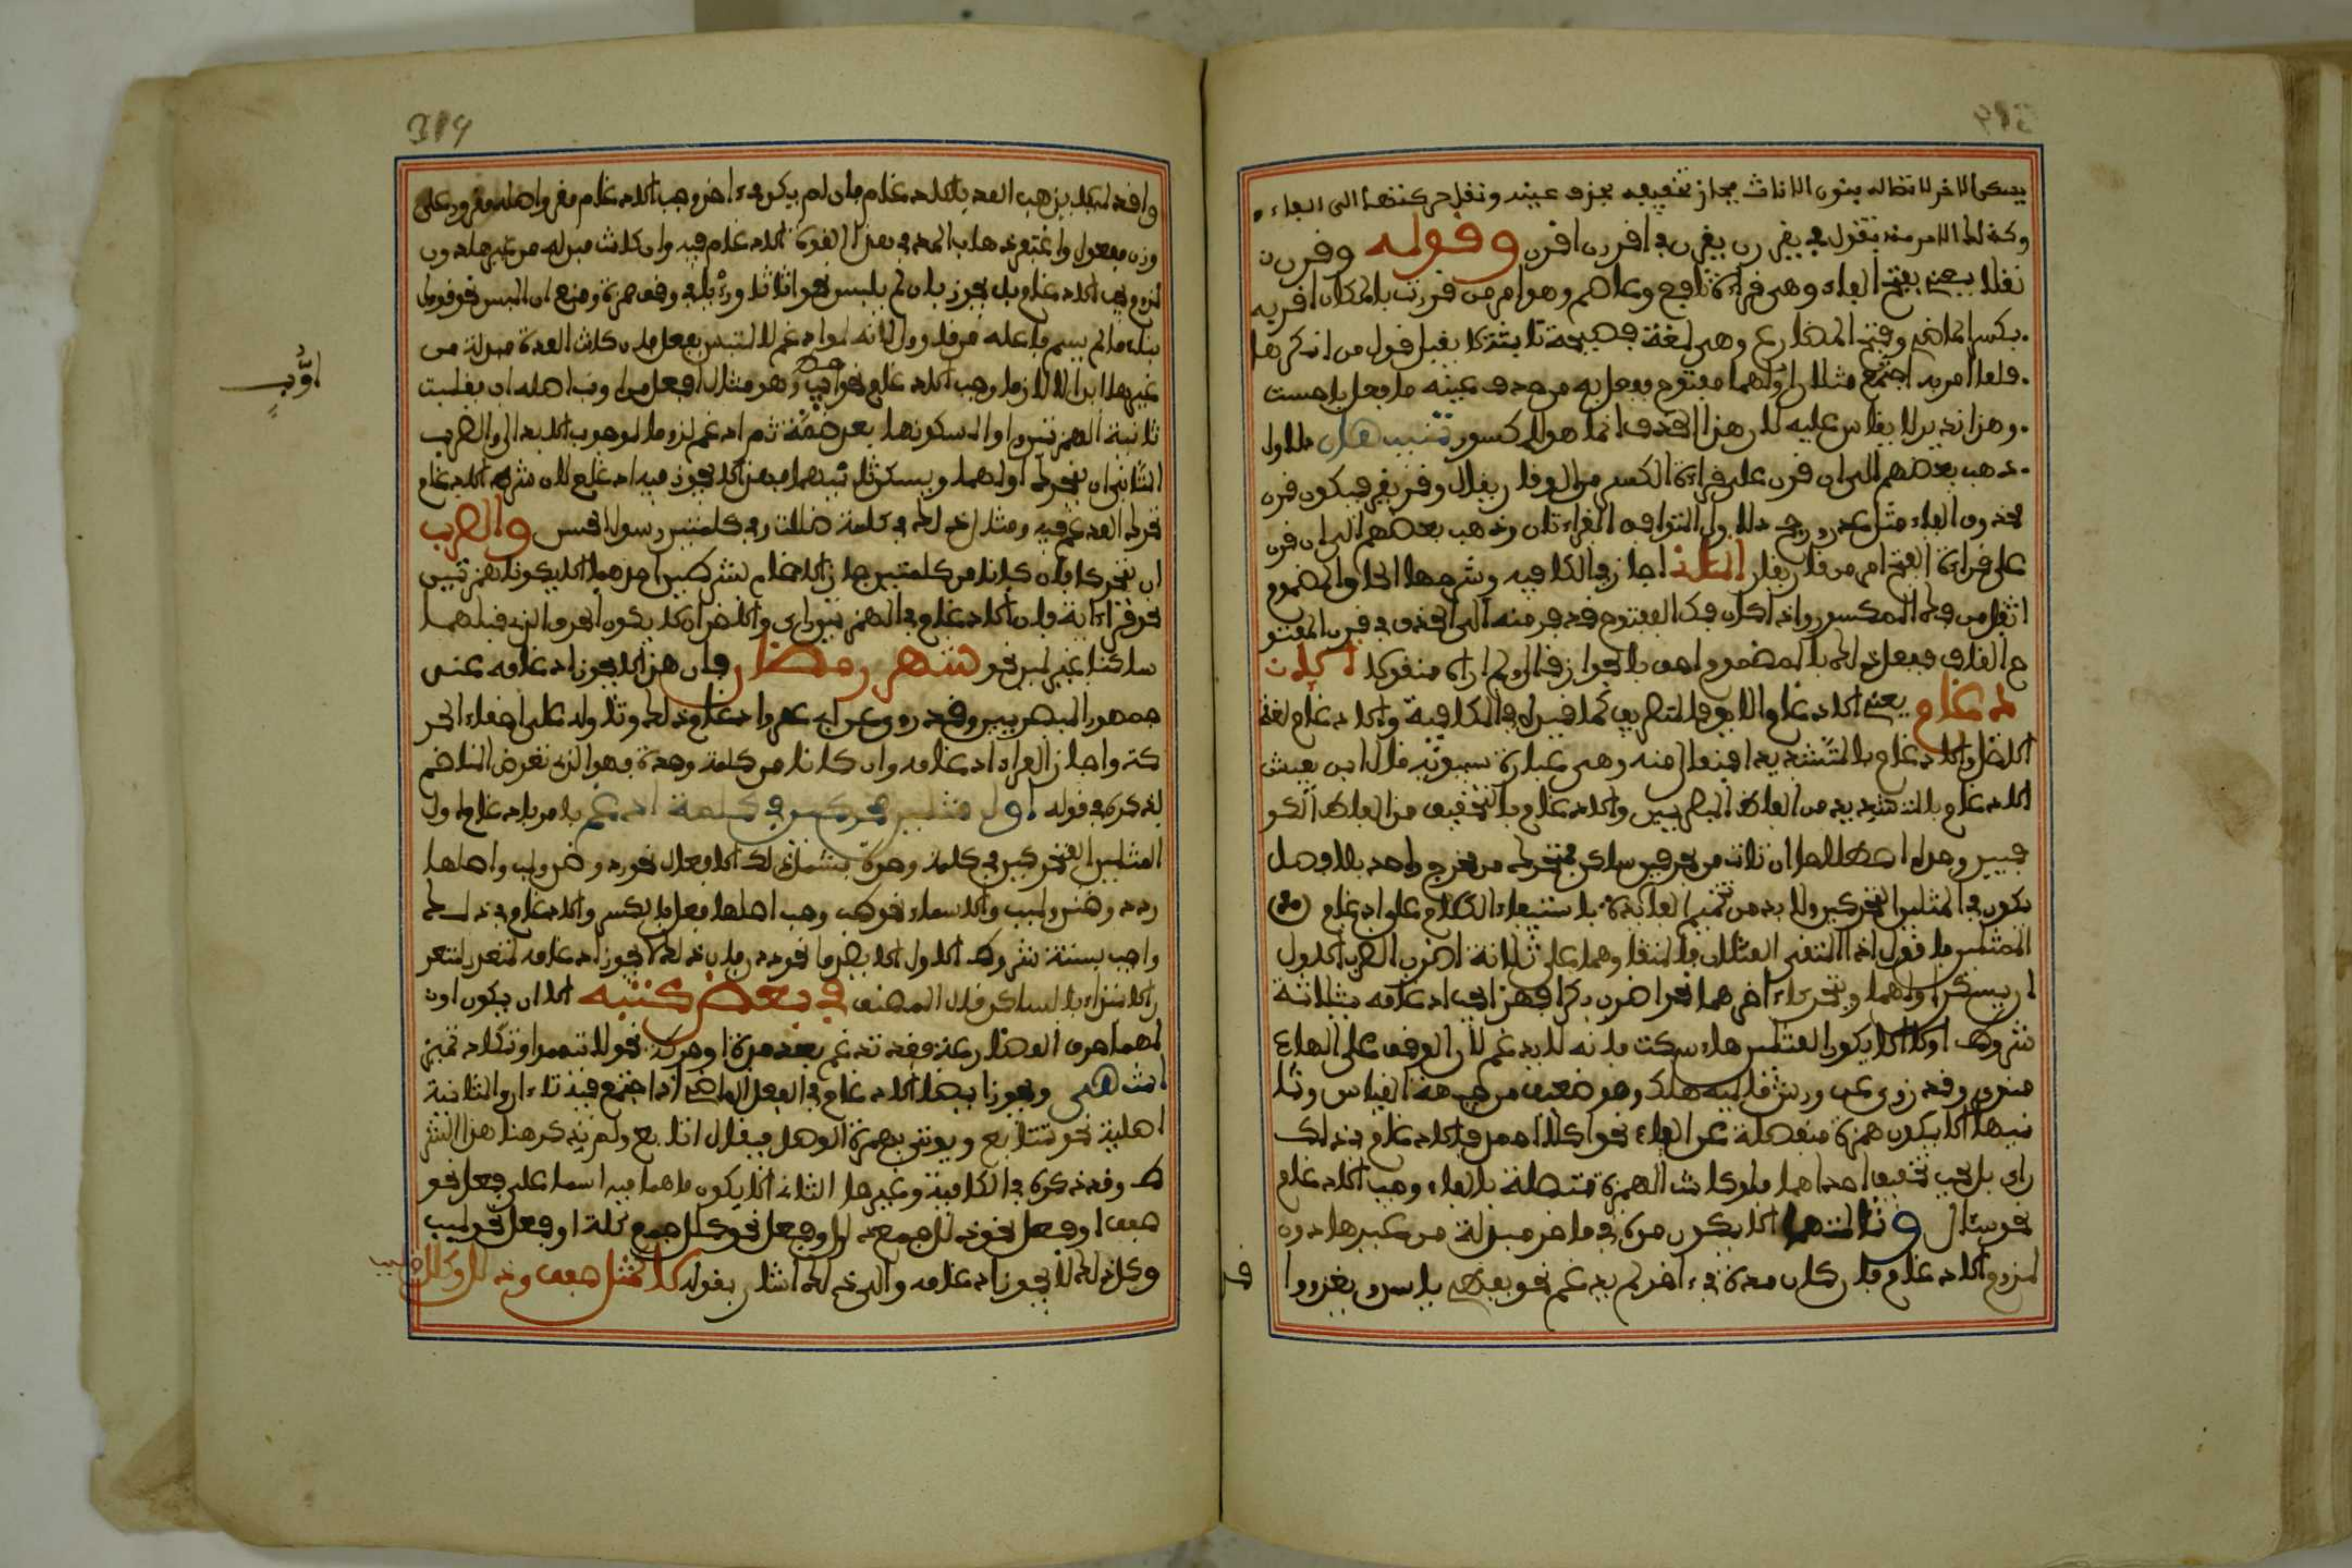 يسكن الاخر لاتصاله بنون الاناث مجاز تخفيفه بحذف عينه ونقل حركتها الى الفاء
وكذلك الامر منه فتقول في يقررن يقرن وفي اقررن اقرن وقوله وقرن
نقلا يعني بفتح القاف وهي قراءة نافع وعاصم وهو امر من قررت بالمكان اقر به
بكسر الماضي وفتح المضارع وهي لغة فصيحة ثابتة يقبل قول من انكرها
فلما امر به اجتمع مثلان اولهما مفتوح ففعل به من حذف عينه ما فعل باحست
وهذا نادر لا يقاس عليه لان هذا الحذف انما هو للمكسور تنبيهان الاول
ذهب بعضهم الى ان قرن على قراءة الكسر من الوقار يقال وقر يقر فيكون قرن
محذوف الفاء مثل عدن ورجح الاول لتتوافق القراءتان وذهب بعضهم الى ان قرن
على قراءة الفتح امر من قار يقار الثاني اجاز في الكافيه وشرحها الحاق المضموم
اثقل من فك المكسور واذا كان فك المفتوح قد فر منه الى الحذف في قرن المفتو
ح القاف ففعل ذلك بالمضموم احق بالجواز قال ولم اره منقولا الا
دغام يعني الادغام اللايق بالتصريف كما قيد في الكافية والادغام لغة
الادخال والادغام بالتشديد افتعال منه وهي عبارة سيبويه قال ابن يعيش
الادغام بالتشديد من الفاظ البصريين والادغام بالتخفيف من الفاظ الكو
فيين وهو اصطلاحا ان تاتي بحرفين ساكن فمتحرك من مخرج واحد بلا فصل
يكون في المثلين المتحركين ولا بد من تتميم الفايدة باستيفاء الكلام على ادغام
المثلين فاقول اذا التقى المثلان فالتقاوهما على ثلاثة اضرب الضرب الاول
ان يسكن اولهما ويتحرك اخرهما نحو اضرب بكرا فهذا يجب ادغامه بثلاثة
شروط اولا الا يكون اول المثلين هاء سكت فانه لا يدغم لان الوقف على الهاء
منوي وقد روي عن ورش ماليه هلك وهو ضعيف من جهة القياس وثا
نيها الا يكون همزة منفصلة عن الفاء نحو اكلا احمد فالادغام في ذلك
رديء بل يجب تخفيف احداهما فلو كانت الهمزة متصلة بالفاء وجب الادغام
نحو سئال وثالثها الا يكون مدة في الاخر مبدلة من غيرها دون
لزوم الادغام فان كان مدة في الاخر لم يدغم نحو يعطي ياسر ويغزو وا
319
واقد لئلا يذهب المد بالادغام فان لم يكن في اخر وجب الادغام مغزو اصله مغزوو على
وزن مفعول واغتفر ذهاب المد في هذا لقوة الادغام فيه وان كانت مبدلة من غيرها دون
لزوم لم يجب الادغام بل يجوز ان لم يلبس نحو اثاثا وريا في وقف حمزة ومنع ان البس نحو قوول
بناء ما لم يسم فاعله من قاول لانه لو ادغم لالتبس بفعل فان كانت المدة مبدلة من
غيرها ابدالا لازما وجب الادغام نحو اوب وهو مثال افعل من اوب اصله اأوب فقلبت
ثانية الهمزتين واوا لسكونها بعد ضمة ثم ادغم لزوما لوجوب الابدال والضرب
الثاني ان يتحرك اولهما ويسكن ثانيهما فهذا لا يجوز فيه ادغام لان شرط الادغام
تحرك المدغم فيه ومثال ذلك في كلمة ظللت وفي كلمتين رسول الحسن والضرب
ان يتحركا فان كانا من كلمتين جاز الادغام بشرطين احدهما الا يكونا همزتين
نحو قرا اية فان الادغام في الهمزتين رديء والاخر الا يكون الحرف الذي قبلهما
ساكنا غير لين نحو شهر رمضان فان هذا لا يجوز ادغامه عند
جمهور البصريين وقد روي عن ابي عمرو ادغام ذلك وتاولوه على اخفاء الحر
كة واجاز الفراء ادغامه وان كانا من كلمة وحدة فهو الذي تعرض الناظم
لذكره في قوله اول مثلين محركين في كلمة ادغم يامر بادغام اول
المثلين المتحركين في كلمة وحدة يشمل ذلك الافعال نحو رد وضن ولب واصلها
ردد وضنن ولبب والاسماء نحو طب وصب اصلهما فعل بالكسر والادغام في ذلك
واجب بستة شروط الاول الا يصدرا نحو ددن فان ذلك لا يجوز ادغامه لتعذر
الابتداء بالساكن قال المصنف في بعض كتبه الا ان يكون او
لهما حرف المضارعة فقد تدغم بعد مدة او حركة نحو لا تيمموا وتكاد تميز
انتهى ويجوز ايضا الادغام في الفعل الماضي اذا اجتمع فيه تاءان والثانية
اصلية نحو تتابع ويوتى بهمزة الوصل فيقال اتابع ولم يذكر هنا هذا الشر
ط وقد ذكره في الكافية وغيرها الثاني الا يكون ما هما فيه اسما على فعل نحو
صفف او فعل نحو ذلل جمع ذلول او فعل نحو كلل جمع كلة او فعل نحو لبب
وكل ذلك لا يجوز ادغامه والى ذلك اشار بقوله لا كمثل صفف وذلل وكلل ولبب
اوب